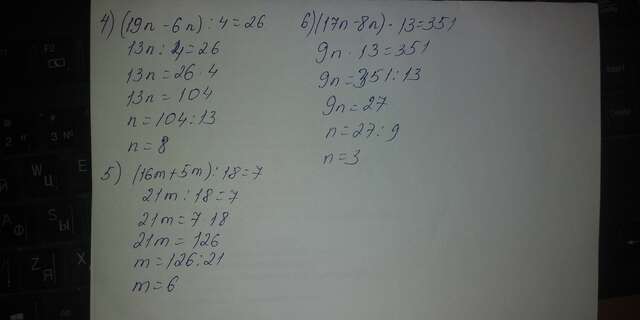 4) (19n - 6n) : 4 = 26
13n : 4 = 26
13n = 26 · 4
13n = 104
n = 104 : 13
n = 8
5) (16m + 5m) : 18 = 7
21m : 18 = 7
21m = 7 · 18
21m = 126
m = 126 : 21
m = 6
6) (17n - 8n) · 13 = 351
9n · 13 = 351
9n = 351 : 13
9n = 27
n = 27 : 9
n = 3